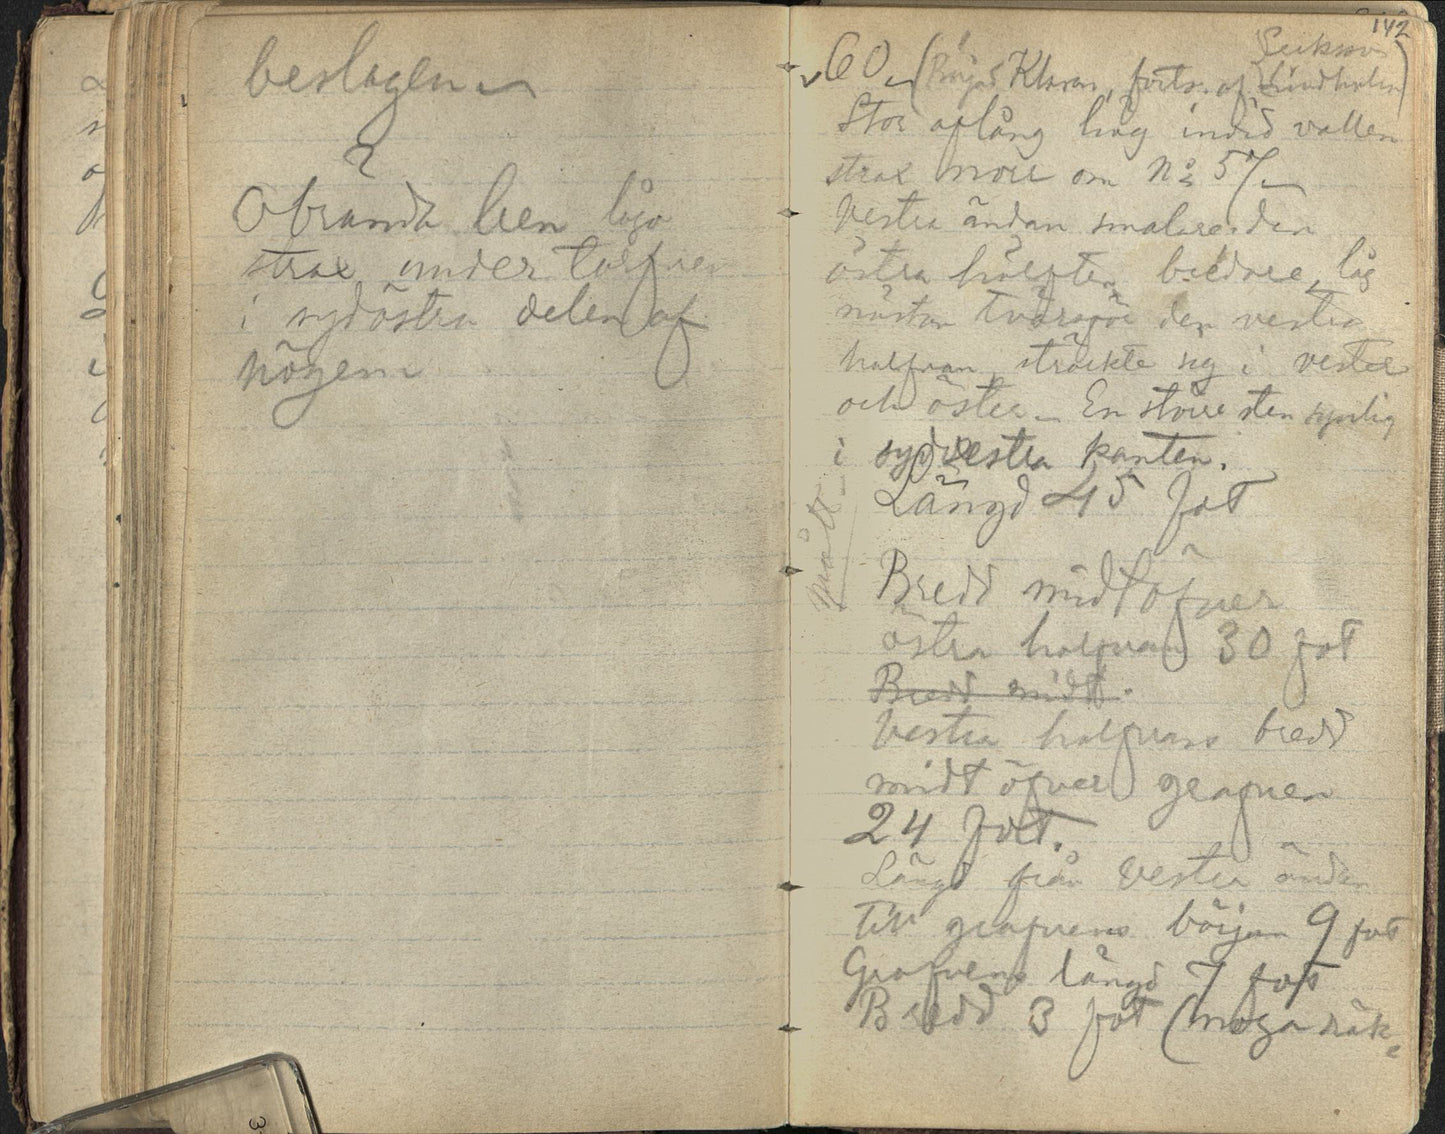 beslagen
2
Obrända ben lågo
strax under torfven
i sydöstra delen af
högen
142
Eriksson
60 (Börjad Klaran, forts. af Lindholm)
Stor aflång hög invid vallen
strax norr om No 57
Vestra ändan smalare den
östra hälften bredare, låg
nästan tvärsför den vestra
halfvan, sträckte sig i vester
och öster. En större sten synlig
i sydvestra kanten.
Längd 45 fot
Mått
Bredd midtöfver
östra halfvan 30 fot
Bredd midt
Vestra halfvans bredd
midt öfver grafven
24 fot.
Längd från vestra ändan
till grafvens början 9 fot
Grafvens längd 7 fot
Bredd 3 fot (noga räk-